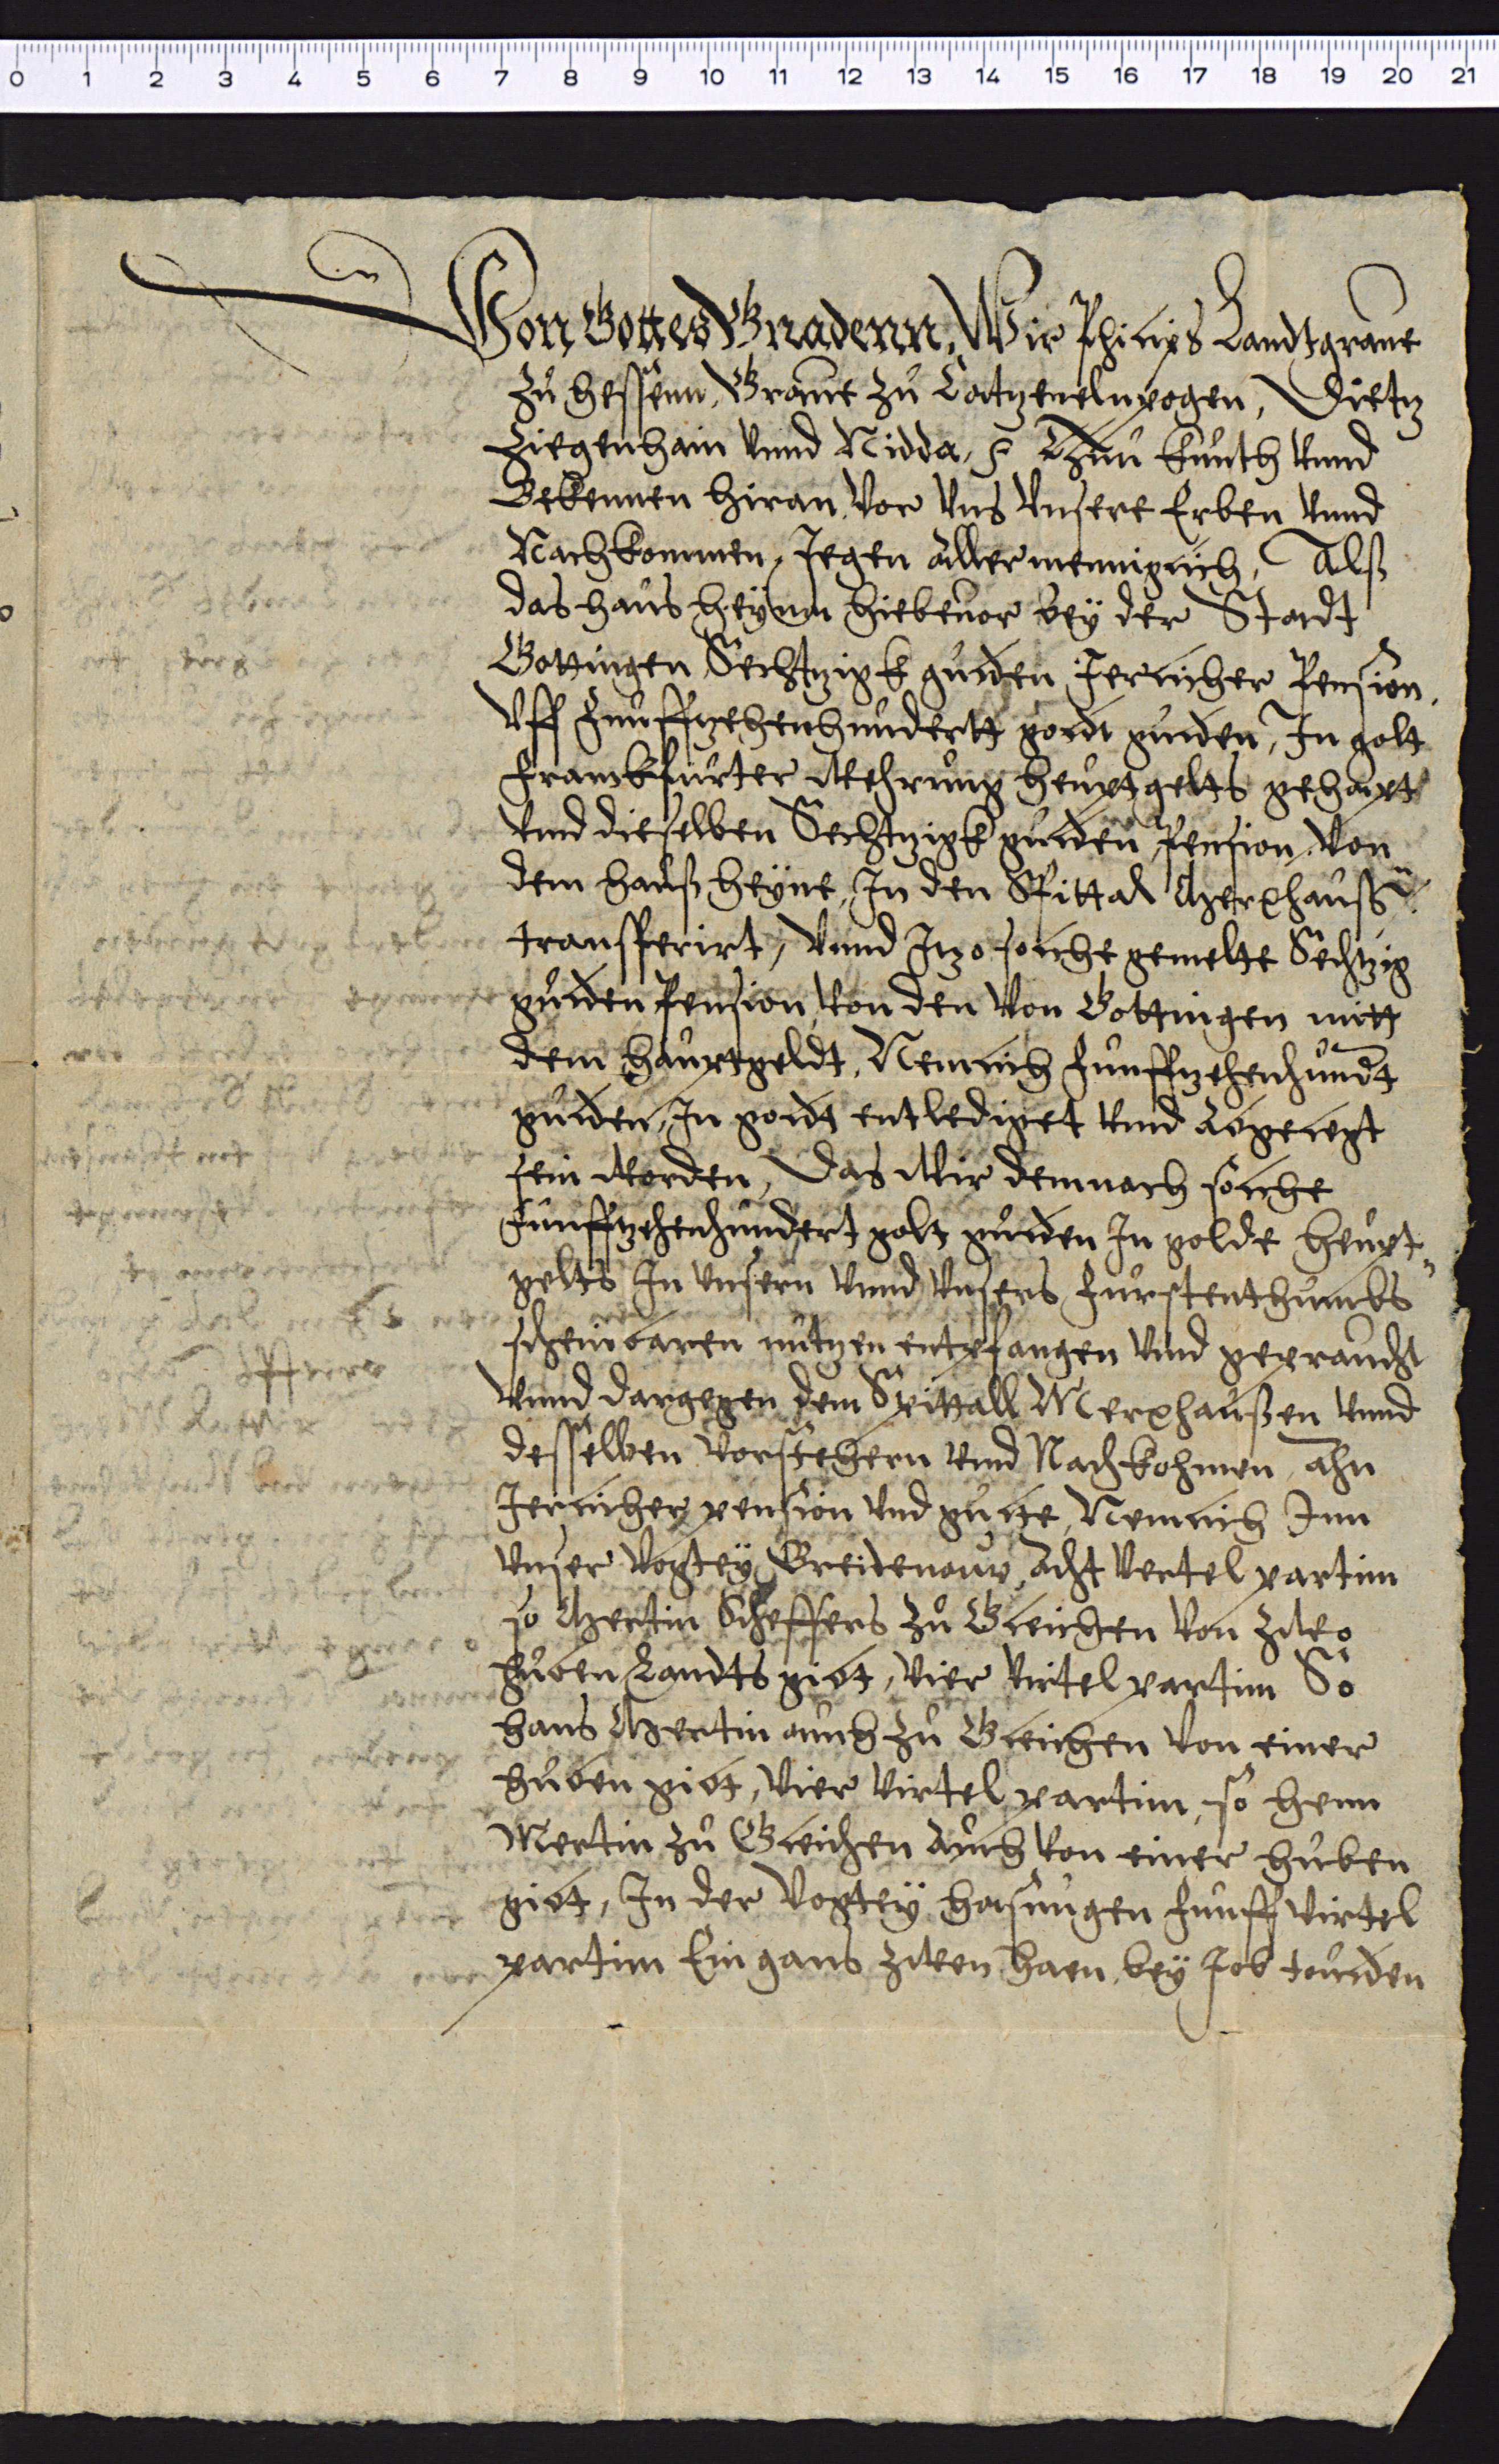 0 1 2 3 4 5 6 7 8 9 10 11 12 13 14 15 16 17 18 19 20 21
Von Gottes Gnadenn, Wir Philips Landtgraue
zu hessenn, Graue zu Catzenelnpogen, Dietz
Ziegenhain vnnd Nidda, Thun kunth vnnd
Bekennen hiran vor vns vnsere Erben vnnd
Nachkommen, Jegen Allermenniglich, Alß
das haus heynn hiebeuor bey der Stadt
Gottingen Sechtzigk gulden Jerlicher Pension,
Vff funffzehenhundertt goldt gulden, In golt
franckfurter Wehrung heuptgelts gehapt
vnnd dieselben Sechtzigk gulden Pension von
dem hauß heyne, In den Spittal Merxhauß
transferirt, vnnd Itzo solche gemelte Sechtzig
gulden Pension von den von Gottingen mitt
dem hauptgeldt, Nemlich funffzehenhundt
gulden, In goldt entlediget vnnd Abgelegt
sein worden, Das Wir demnach solche
funffzehenhundert golt gulden In golde heupt„
gelts In vnsern vnnd vnsers furstenthumbs
scheinbaren nutzen entpfangen vnnd gepraucht
vnnd dargegen dem Spittall Merxhaußen vnnd
desselben vorstehern vnnd Nachkohmen ahn
Jerlicher pension vnd gulte, Nemlich Inn
vnser Vogtey Breitenaw, Acht vertel partim
so Mertin Scheffers zu Gleichen von zwo
huben Landts gibt, vier virtel partim So
hans Mertin auch zu Gleichen von einer
huben gibt, vier virtel partim, so henn
Mertin zu Gleichen Auch von einer huben
gibt, In der Vogtey hasungen funff virtel
partim Ein gans zween haen, bey Job tölden